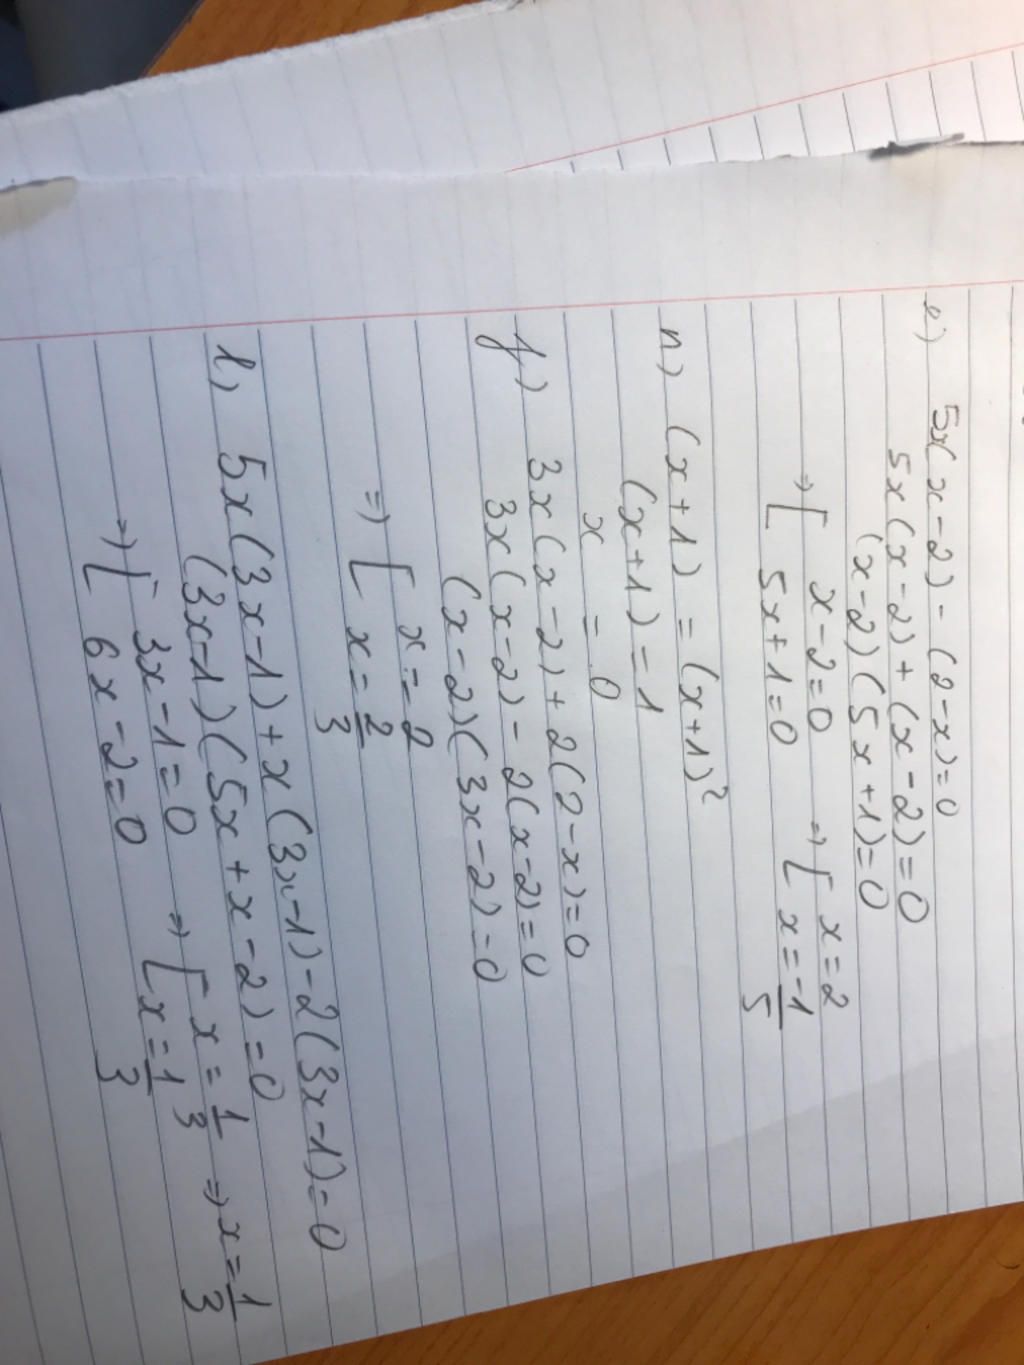 e) 5x(x-2) - (2-x)=0
5x(x-2) + (x-2)=0
(x-2)(5x+1)=0
=> [ x-2=0 => [ x=2
5x+1=0 x=-1/5
n) (x+1) = (x+1)²
(x+1) = 1
x = 0
f) 3x(x-2) + 2(2-x)=0
3x(x-2) - 2(x-2)=0
(x-2)(3x-2)=0
=> [ x=2
x=2/3
l) 5x(3x-1)+x(3x-1)-2(3x-1)=0
(3x-1)(5x+x-2)=0
=> [ 3x-1=0 => [ x=1/3 => x=1/3
6x-2=0 x=1/3